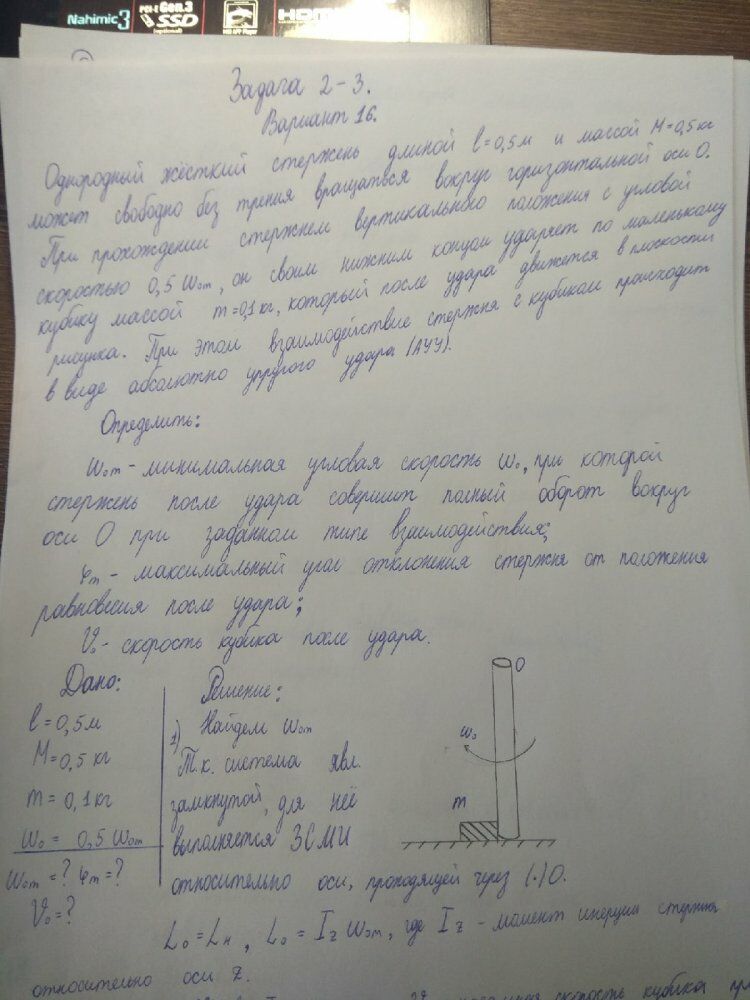 Nahimic 3
PCI-E Gen.3
SSD
HDMI
Задача 2-3.
Вариант 16.
Однородный жёсткий стержень длиной l=0,5м и массой M=0,5кг
может свободно без трения вращаться вокруг горизонтальной оси O.
При прохождении стержнем вертикального положения с угловой
скоростью 0,5 ω₀ₘ, он своим нижним концом ударяет по маленькому
кубику массой m=0,1кг, который после удара движется в плоскости
рисунка. При этом взаимодействие стержня с кубиком происходит
в виде абсолютно упругого удара (АУУ).
Определить:
ω₀ₘ - минимальная угловая скорость ω₀, при которой
стержень после удара совершит полный оборот вокруг
оси O при заданном типе взаимодействия;
φₘ - максимальный угол отклонения стержня от положения
равновесия после удара;
V₀ - скорость кубика после удара.
Дано:
l=0,5м
M=0,5 кг
m=0,1 кг
ω₀= 0,5 ω₀ₘ
ω₀ₘ=? φₘ=?
V₀=?
Решение:
1) Найдем ω₀ₘ
Т.к. система явл.
замкнутой, для неё
выполняется ЗСМИ
относительно оси, проходящей через (·) O.
O
ω₀
m
L₀=Lк, L₀=I_z ω₀ₘ, где I_z - момент инерции стержня
относительно оси z.
скорость кубика